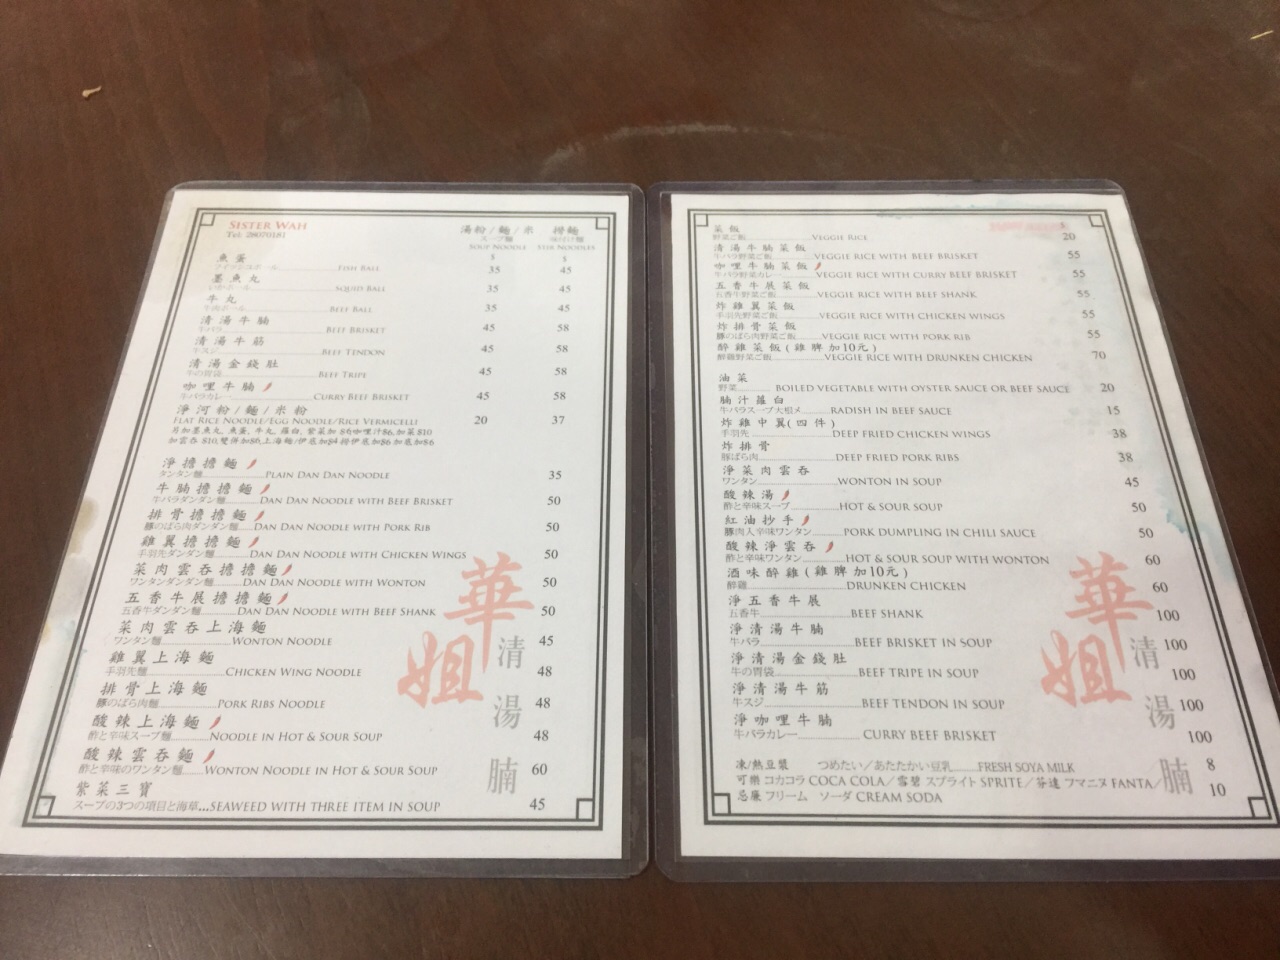 SISTER WAH
TEL: 28070181
湯粉/麵/米 撈麵
スープ麵 味付け麵
SOUP NOODLE STIR NOODLES
$ $
魚蛋
FISH BALL 35 45
墨魚丸
いかボール SQUID BALL 35 45
牛丸
牛肉ボール BEEF BALL 35 45
清湯牛腩
牛バラ BEEF BRISKET 45 58
清湯牛筋
牛スジ BEEF TENDON 45 58
清湯金錢肚
牛の胃袋 BEEF TRIPE 45 58
咖哩牛腩
牛バラカレー CURRY BEEF BRISKET 45 58
淨河粉/麵/米粉
FLAT RICE NOODLE/EGG NOODLE/RICE VERMICELLI 20 37
另加墨魚丸, 魚蛋, 牛丸, 蘿白, 紫菜加 $6咖哩汁$6,加菜$10
加雲吞 $10,雙併加$6,上海麵/伊底加$4 撈伊底加$6 加底加$6
淨擔擔麵
タンタン麵 PLAIN DAN DAN NOODLE 35
牛腩擔擔麵
牛バラダンダン麵 DAN DAN NOODLE WITH BEEF BRISKET 50
排骨擔擔麵
豚のばら肉ダンダン麵 DAN DAN NOODLE WITH PORK RIB 50
雞翼擔擔麵
手羽先ダンダン麵 DAN DAN NOODLE WITH CHICKEN WINGS 50
菜肉雲吞擔擔麵
ワンタンダンダン麵 DAN DAN NOODLE WITH WONTON 50
五香牛展擔擔麵
五香牛ダンダン麵 DAN DAN NOODLE WITH BEEF SHANK 50
菜肉雲吞上海麵
ワンタン麵 WONTON NOODLE 45
雞翼上海麵
手羽先麵 CHICKEN WING NOODLE 48
排骨上海麵
豚のばら肉麵 PORK RIBS NOODLE 48
酸辣上海麵
酢と辛味スープ麵 NOODLE IN HOT & SOUR SOUP 48
酸辣雲吞麵
酢と辛味のワンタン麵 WONTON NOODLE IN HOT & SOUR SOUP 60
紫菜三寶
スープの3つの項目と海草...SEAWEED WITH THREE ITEM IN SOUP 45
華姐
清湯腩
菜飯
野菜ご飯 VEGGIE RICE 20
清湯牛腩菜飯
牛バラ野菜ご飯 VEGGIE RICE WITH BEEF BRISKET 55
咖哩牛腩菜飯
牛バラ野菜カレー VEGGIE RICE WITH CURRY BEEF BRISKET 55
五香牛展菜飯
五香牛野菜ご飯 VEGGIE RICE WITH BEEF SHANK 55
炸雞翼菜飯
手羽先野菜ご飯 VEGGIE RICE WITH CHICKEN WINGS 55
炸排骨菜飯
豚のばら肉野菜ご飯 VEGGIE RICE WITH PORK RIB 55
醉雞菜飯(雞脾加10元)
醉雞野菜ご飯 VEGGIE RICE WITH DRUNKEN CHICKEN 70
油菜
野菜 BOILED VEGETABLE WITH OYSTER SAUCE OR BEEF SAUCE 20
腩汁蘿白
牛バラスープ大根メ RADISH IN BEEF SAUCE 15
炸雞中翼(四件)
手羽先 DEEP FRIED CHICKEN WINGS 38
炸排骨
豚ばら肉 DEEP FRIED PORK RIBS 38
淨菜肉雲吞
ワンタン WONTON IN SOUP 45
酸辣湯
酢と辛味スープ HOT & SOUR SOUP 50
紅油抄手
豚肉入辛味ワンタン PORK DUMPLING IN CHILI SAUCE 50
酸辣淨雲吞
酢と辛味ワンタン HOT & SOUR SOUP WITH WONTON 60
酒味醉雞(雞脾加10元)
醉雞 DRUNKEN CHICKEN 60
淨五香牛展
五香牛 BEEF SHANK 100
淨清湯牛腩
牛バラ BEEF BRISKET IN SOUP 100
淨清湯金錢肚
牛の胃袋 BEEF TRIPE IN SOUP 100
淨清湯牛筋
牛スジ BEEF TENDON IN SOUP 100
淨咖哩牛腩
牛バラカレー CURRY BEEF BRISKET 100
凍/熱豆漿 つめたい/あたたかい豆乳 FRESH SOYA MILK 8
可樂 コカコラ COCA COLA/雪碧 スプライト SPRITE/芬達 フマニヌ FANTA/
忌廉 フリーム ソーダ CREAM SODA 10
華姐
清湯腩